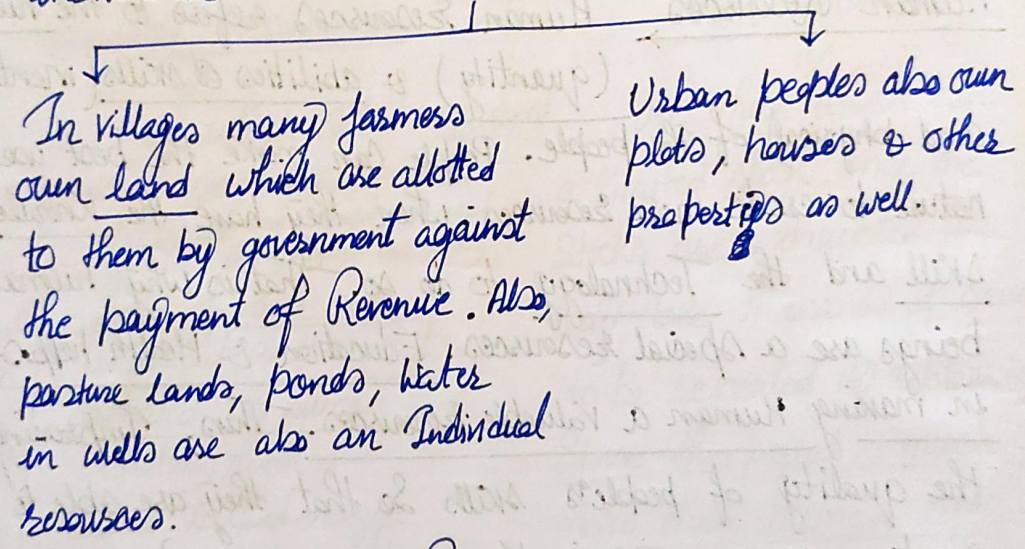 In villages many farmers
own land which are allotted
to them by government against
the payment of Revenue. Also,
pasture lands, ponds, Water
in wells are also an Individual
resources.
Urban peoples also own
plots, houses & other
properties as well.